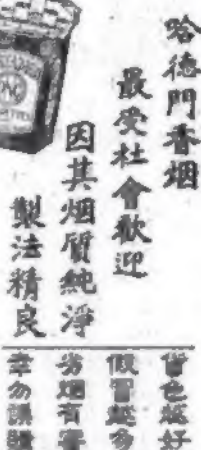 哈德門香烟
最受社會歡迎
因其烟質純淨
製法精良
皆色雖好
假冒雖多
劣烟有害
幸勿誤購